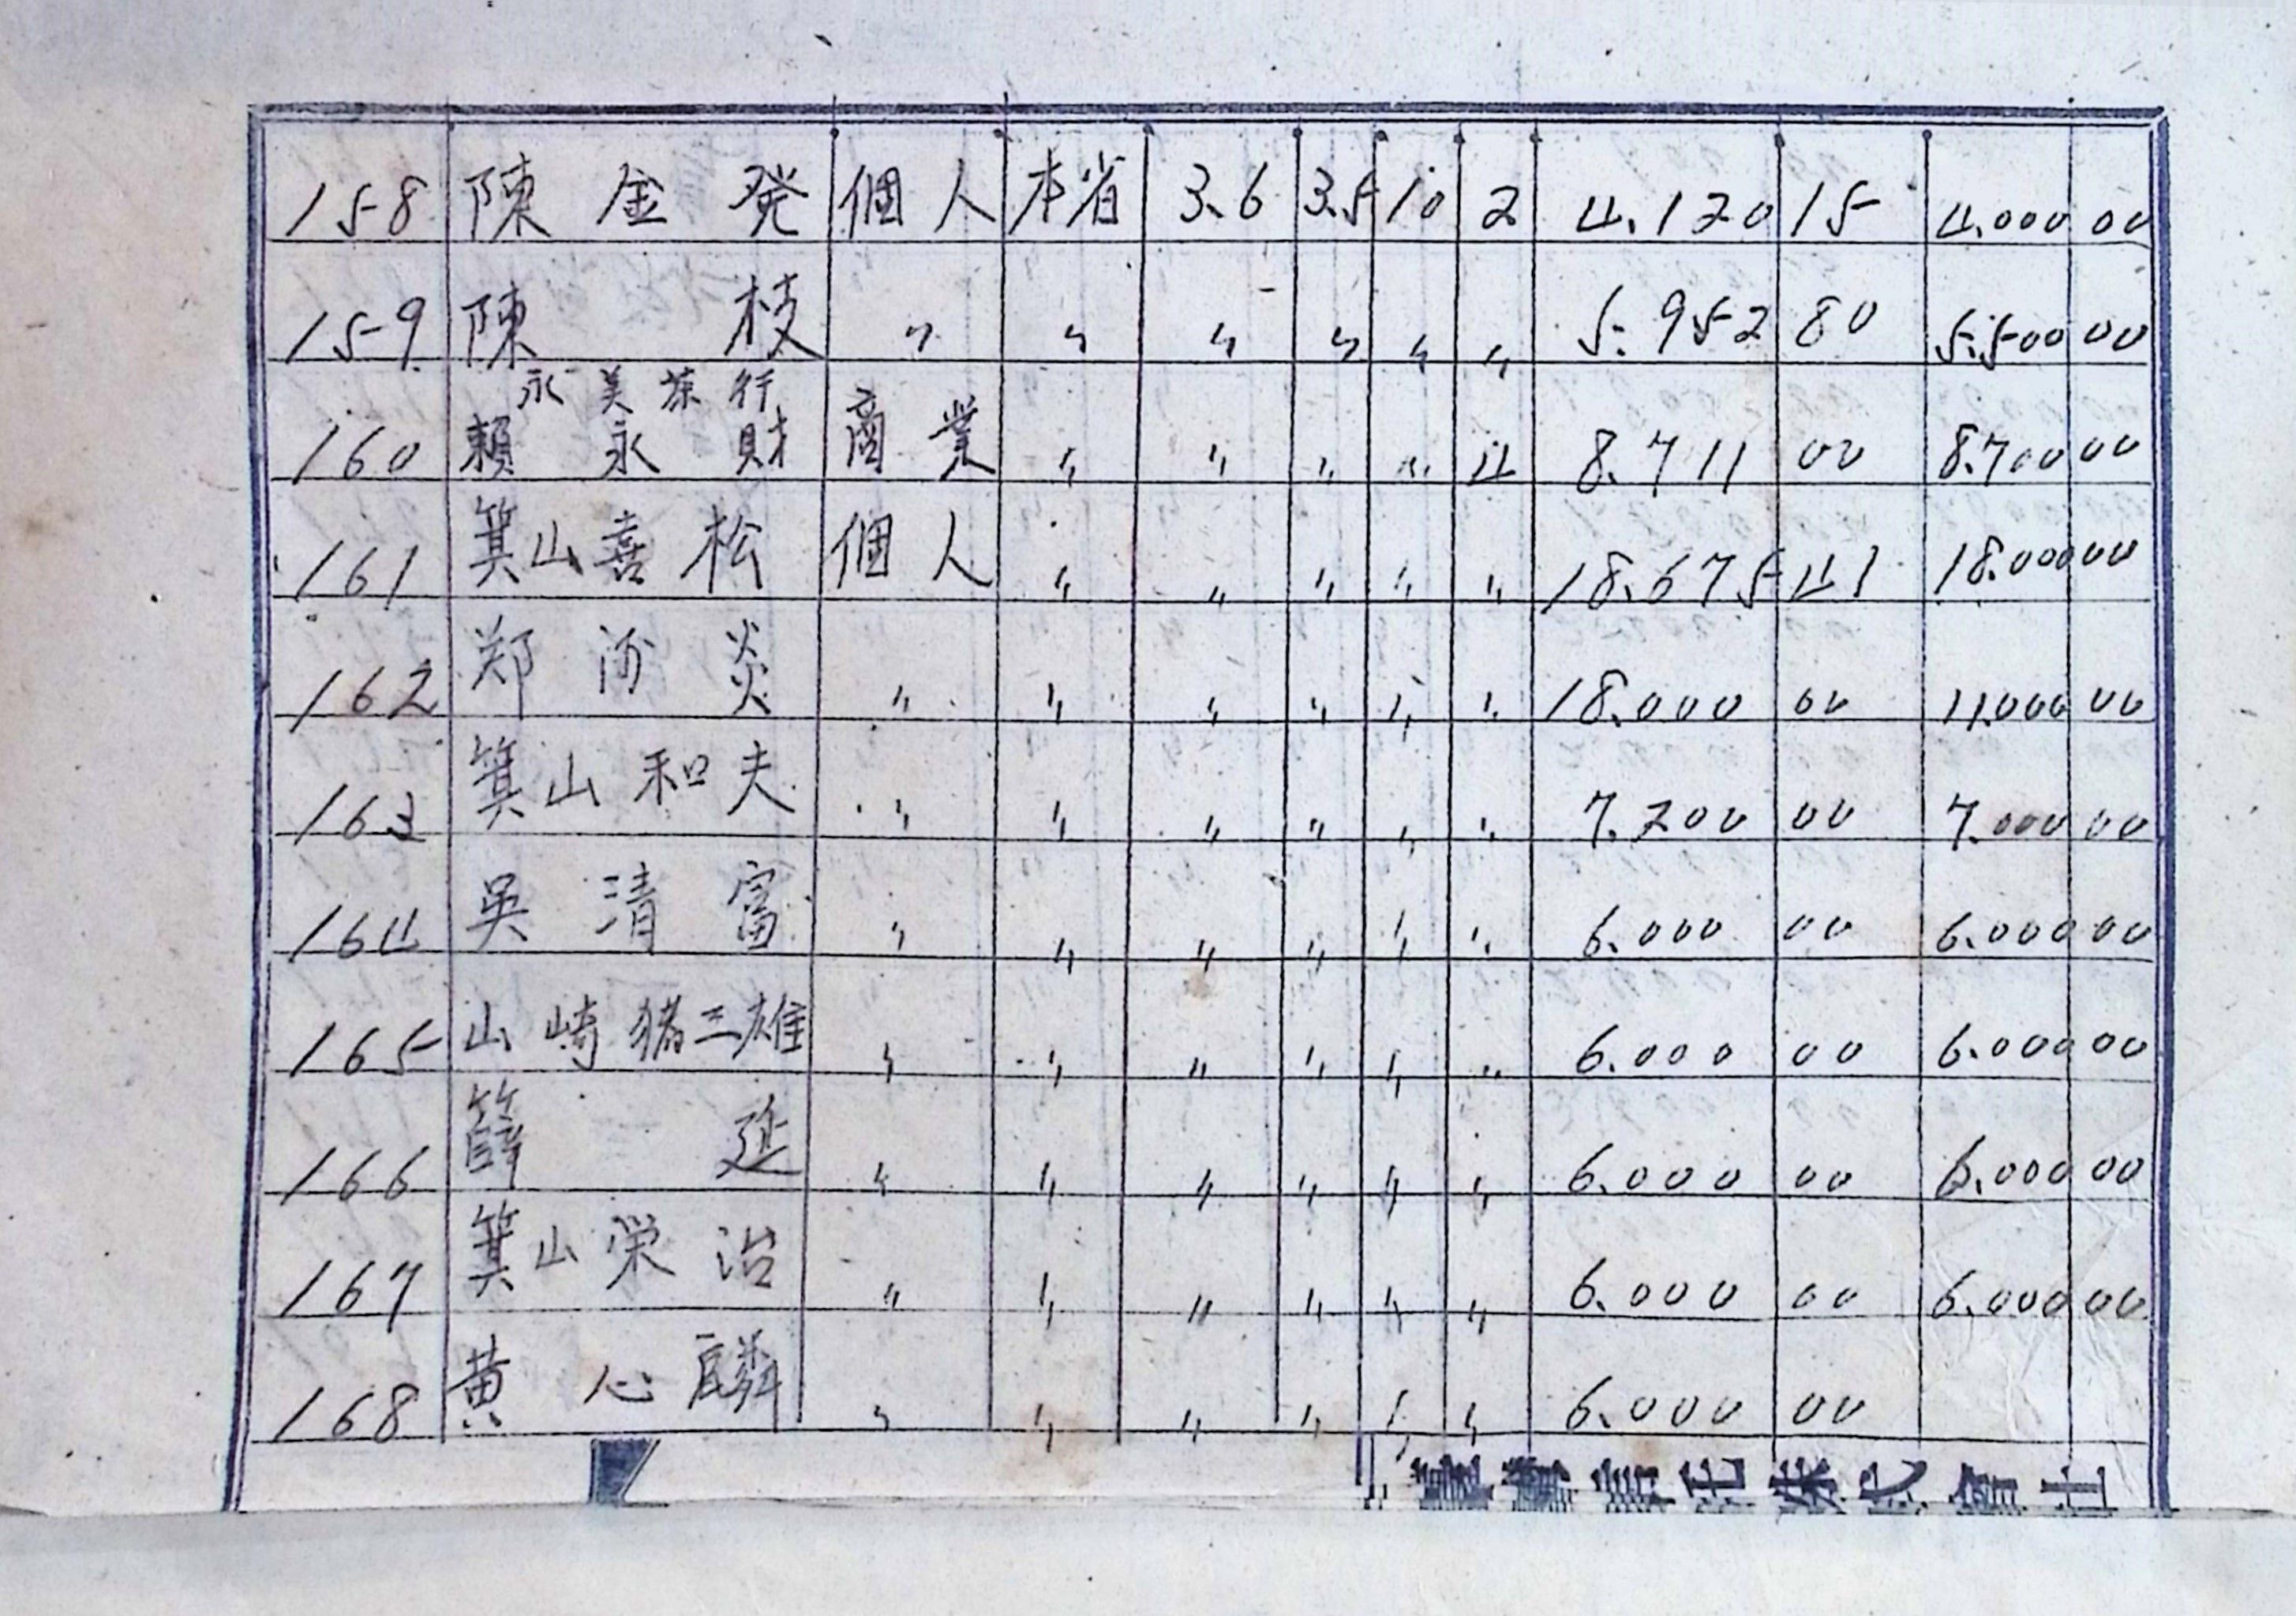 158 陳金発 個人 本省 3.6 3.5 10 2 4.120 15 4.000 00
159 陳枝 〃 〃 〃 〃 〃 〃 5.952 80 5.500 00
永美茶行
160 賴永財 商業 〃 〃 〃 〃 4 8.711 00 8.700 00
161 箕山喜松 個人 〃 〃 〃 〃 〃 18.675 41 18.000 00
162 郑炎 〃 〃 〃 〃 〃 〃 18.000 00 11.000 00
163 箕山和夫 〃 〃 〃 〃 〃 〃 7.200 00 7.000 00
164 吳清富 〃 〃 〃 〃 〃 〃 6.000 00 6.000 00
165 山崎猪三雄 〃 〃 〃 〃 〃 〃 6.000 00 6.000 00
166 薛延 〃 〃 〃 〃 〃 〃 6.000 00 6.000 00
167 箕山栄治 〃 〃 〃 〃 〃 〃 6.000 00 6.000 00
168 黄心麟 〃 〃 〃 〃 〃 〃 6.000 00